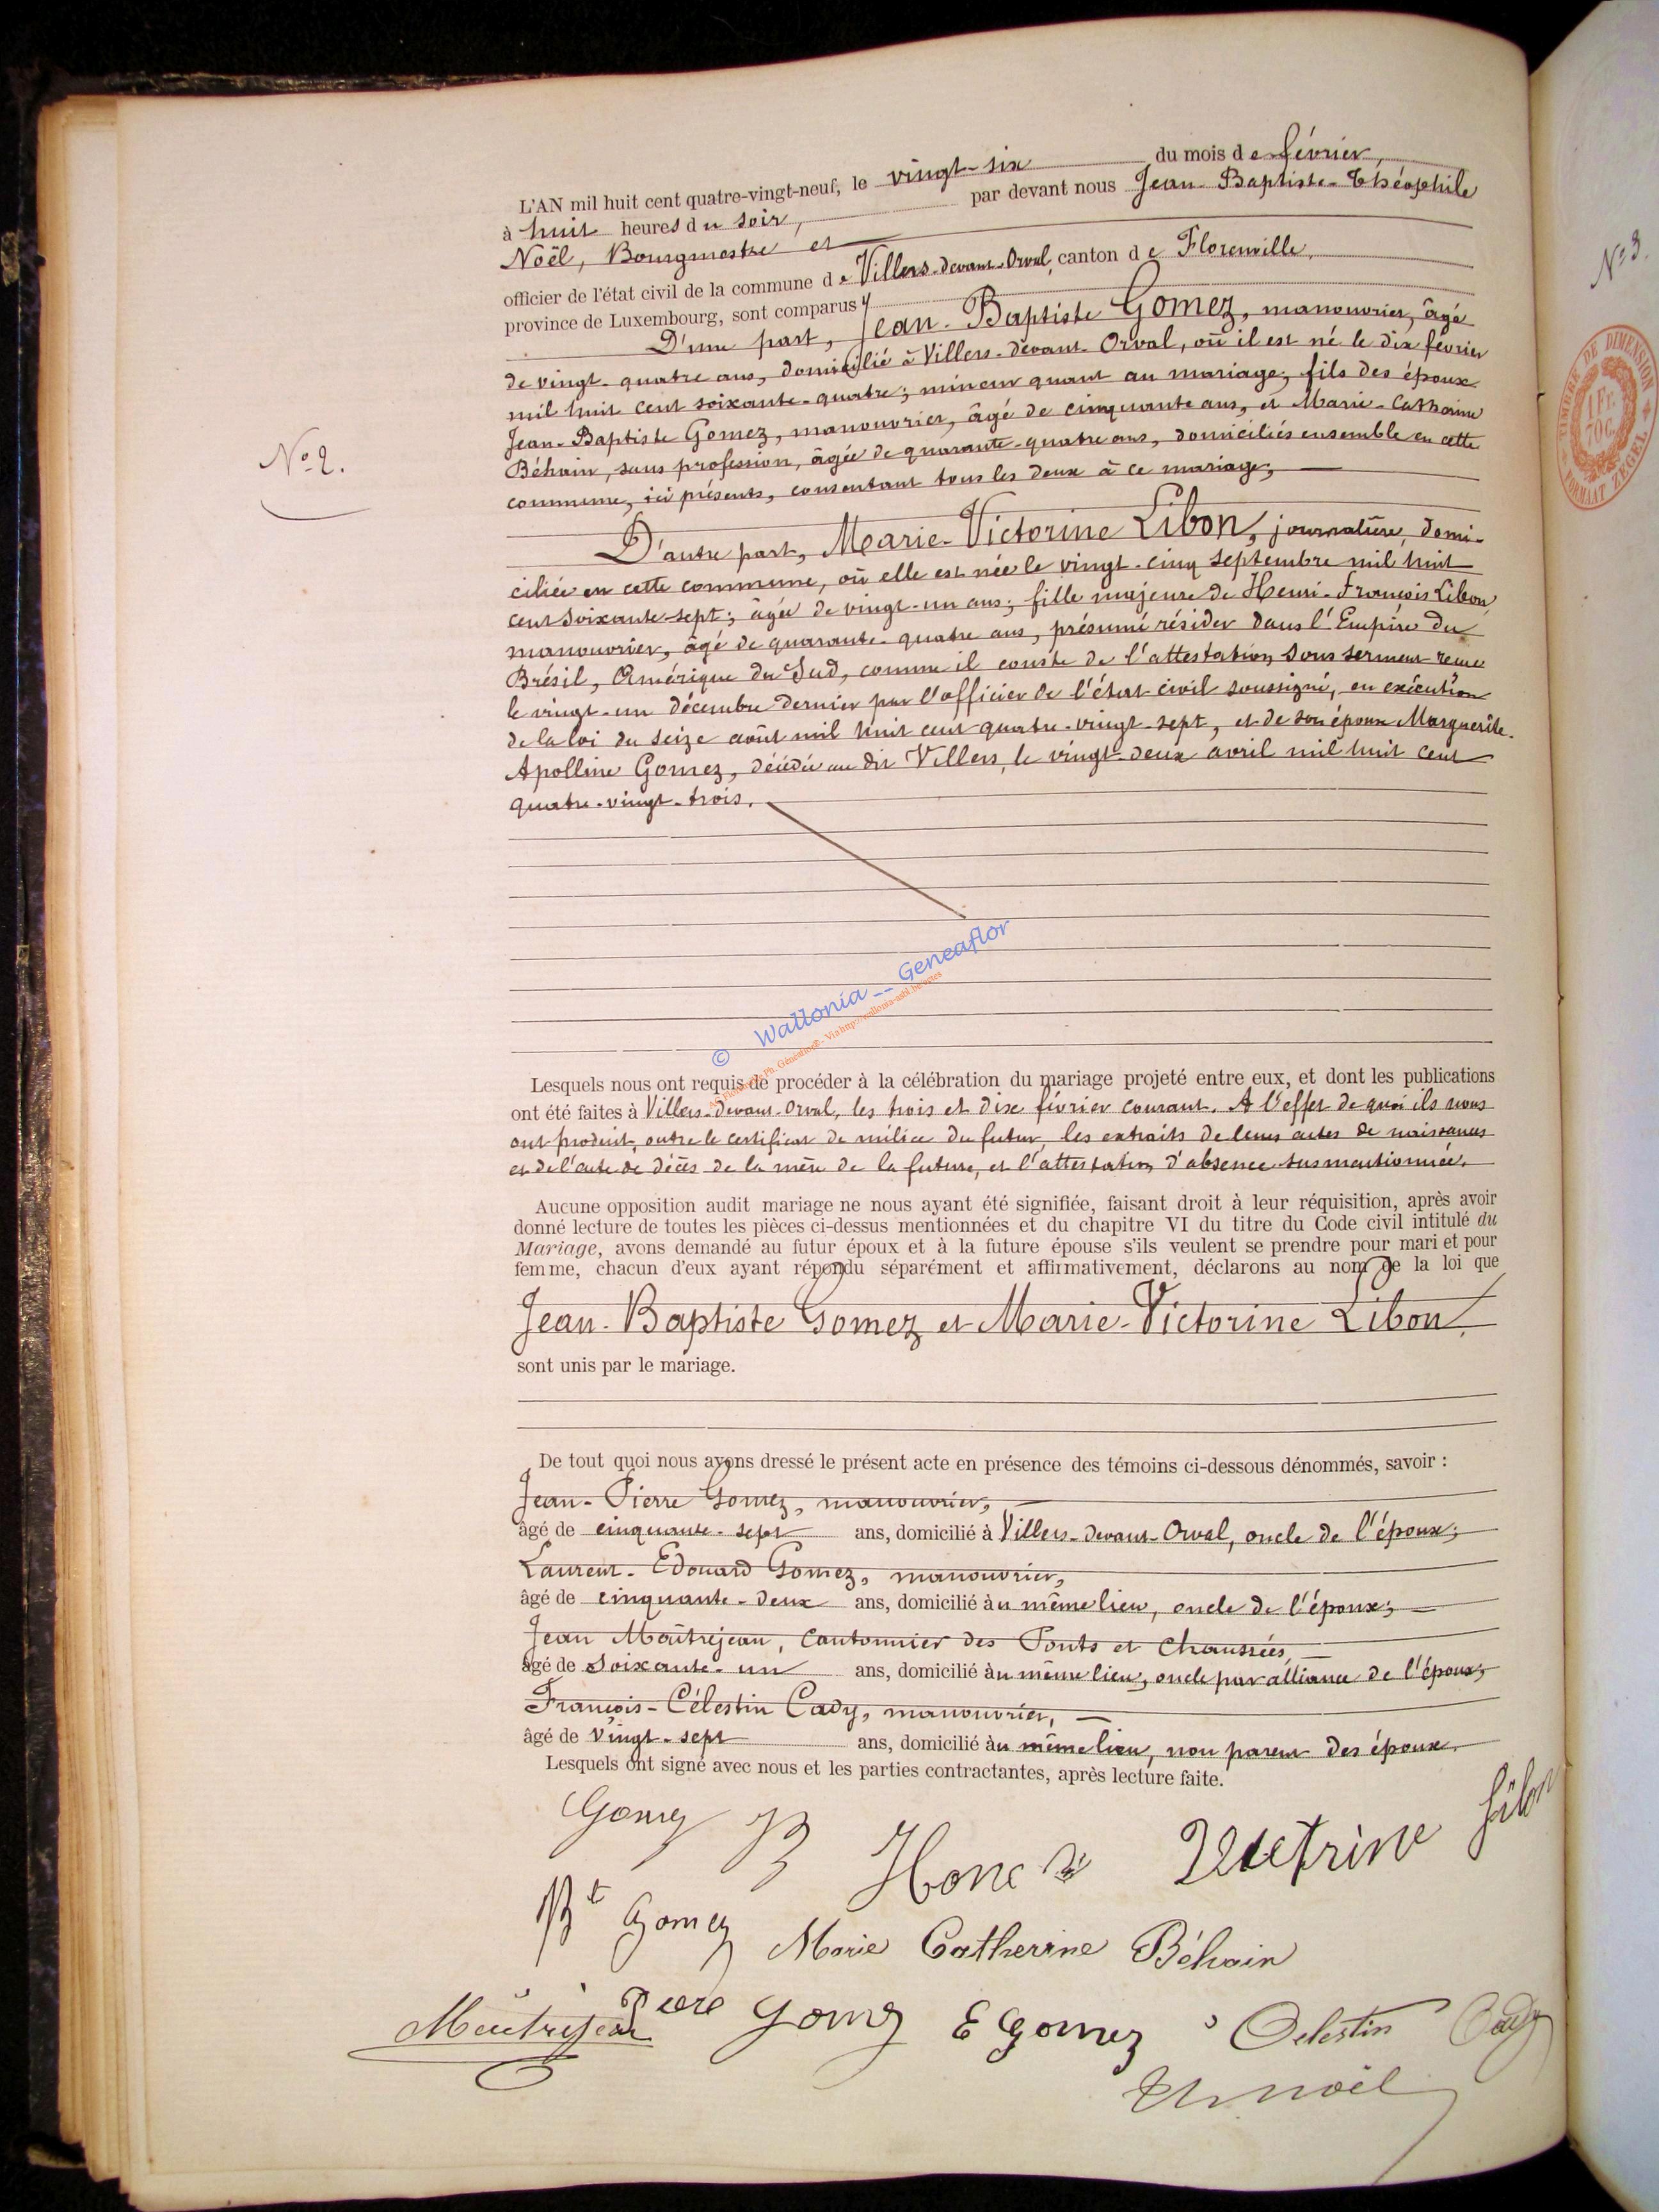 N° 2.
L'AN mil huit cent quatre-vingt-neuf, le vingt-six du mois de février,
à huit heures du soir, par devant nous Jean-Baptiste-Théophile
Noël, Bourgmestre et
officier de l'état civil de la commune de Villers-devant-Orval, canton de Florenville,
province de Luxembourg, sont comparus
D'une part, Jean-Baptiste Gomez, manouvrier, âgé
de vingt-quatre ans, domicilié à Villers-devant-Orval, où il est né le dix février
mil huit cent soixante-quatre; mineur quant au mariage; fils des époux
Jean-Baptiste Gomez, manouvrier, âgé de cinquante ans, et Marie-Catherine
Béhain, sans profession, âgée de quarante-quatre ans, domiciliés ensemble en cette
commune, ici présents, consentant tous les deux à ce mariage;
D'autre part, Marie-Victorine Libon, journalière, domi-
ciliée en cette commune, où elle est née le vingt-cinq septembre mil huit
cent soixante-sept; âgée de vingt-un ans; fille majeure de Henri-François Libon,
manouvrier, âgé de quarante-quatre ans, présumé résider dans l'Empire du
Brésil, Amérique du Sud, comme il conste de l'attestation sous serment reçue
le vingt-un décembre dernier par l'officier de l'état civil soussigné, en exécution
de la loi du seize août mil huit cent quatre-vingt-sept, et de son épouse Marguerite-
Apolline Gomez, décédée au dit Villers, le vingt-deux avril mil huit cent
quatre-vingt-trois.
© Wallonia -- Geneaflor
Lesquels nous ont requis de procéder à la célébration du mariage projeté entre eux, et dont les publications
ont été faites à Villers-devant-Orval, les trois et dix février courant. A l'effet de quoi ils nous
ont produit, outre le certificat de milice du futur, les extraits de leurs actes de naissances
et de l'acte de décès de la mère de la future, et l'attestation d'absence susmentionnée.
Aucune opposition audit mariage ne nous ayant été signifiée, faisant droit à leur réquisition, après avoir
donné lecture de toutes les pièces ci-dessus mentionnées et du chapitre VI du titre du Code civil intitulé du
Mariage, avons demandé au futur époux et à la future épouse s'ils veulent se prendre pour mari et pour
femme, chacun d'eux ayant répondu séparément et affirmativement, déclarons au nom de la loi que
Jean-Baptiste Gomez et Marie-Victorine Libon
sont unis par le mariage.
De tout quoi nous avons dressé le présent acte en présence des témoins ci-dessous dénommés, savoir :
Jean-Pierre Gomez, manouvrier,
âgé de cinquante-sept ans, domicilié à Villers-devant-Orval, oncle de l'époux;
Laurent-Edouard Gomez, manouvrier,
âgé de cinquante-deux ans, domicilié au même lieu, oncle de l'époux;
Jean Maîtrejean, cantonnier des Ponts et Chaussées,
âgé de soixante-un ans, domicilié au même lieu, oncle par alliance de l'époux;
François-Célestin Cady, manouvrier,
âgé de vingt-sept ans, domicilié au même lieu, non parent des époux.
Lesquels ont signé avec nous et les parties contractantes, après lecture faite.
Gomez B Libon
Bt Gomez Marie Catherine Béhain
Gomez E Gomez Celestin Cady
Th Noël
N° 3.
TIMBRE DE DIMENSION
1 Fr.
70 C.
FORMAAT ZEGEL